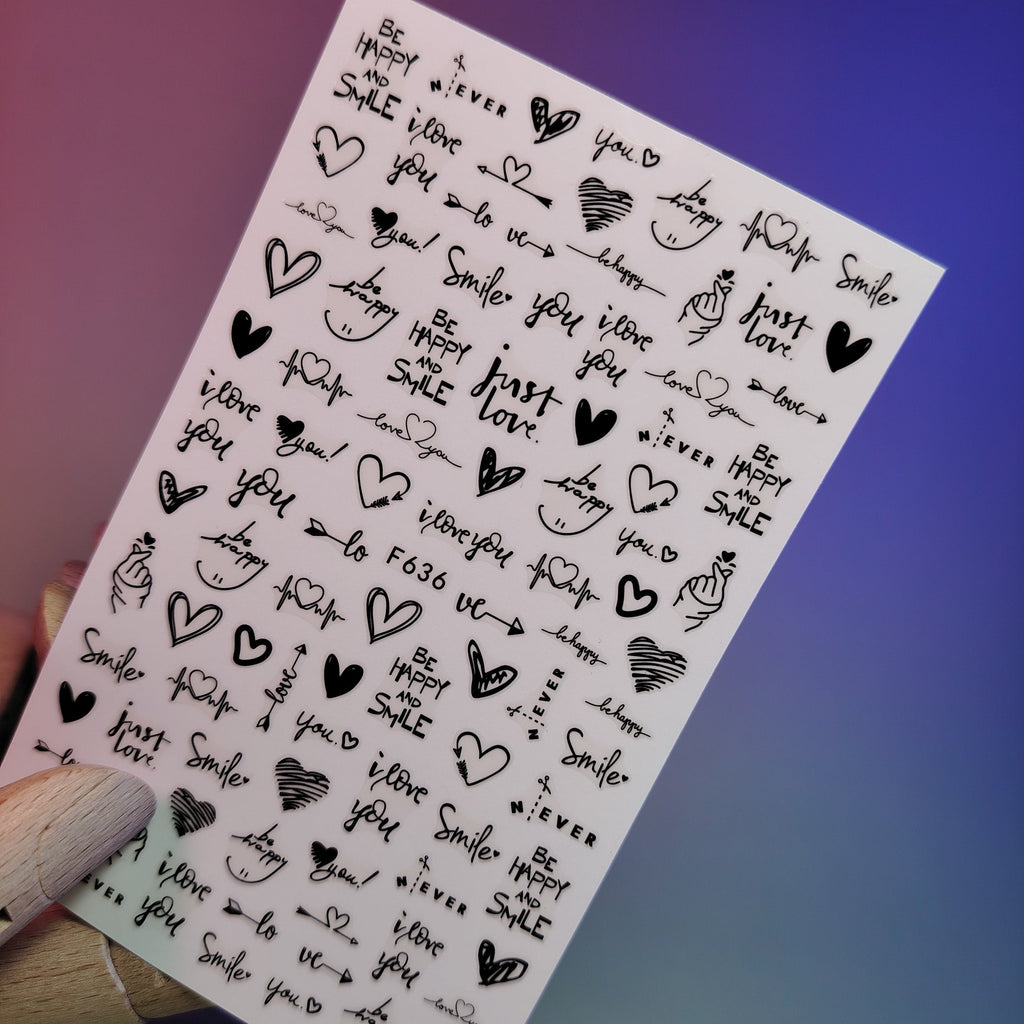 BE
HAPPY
AND
SMILE
N EVER
i love
you
you.
be
happy
Smile
love you
you!
lo ve
be happy
just
love.
be
happy
Smile
you
i love
you
love
BE
HAPPY
AND
SMILE
just
love.
love you
N EVER
BE
HAPPY
AND
SMILE
i love
you
you!
love you
be
happy
you
i love you
you.
be
happy
lo F636 ve
be happy
Smile
love
BE
HAPPY
AND
SMILE
N EVER
be happy
just
love.
you.
Smile
Smile
i love
you
Smile
N EVER
be
happy
you!
N EVER
BE
HAPPY
AND
SMILE
EVER
i love
you
lo
ve
i love
you
Smile
you.
be
happy
love you